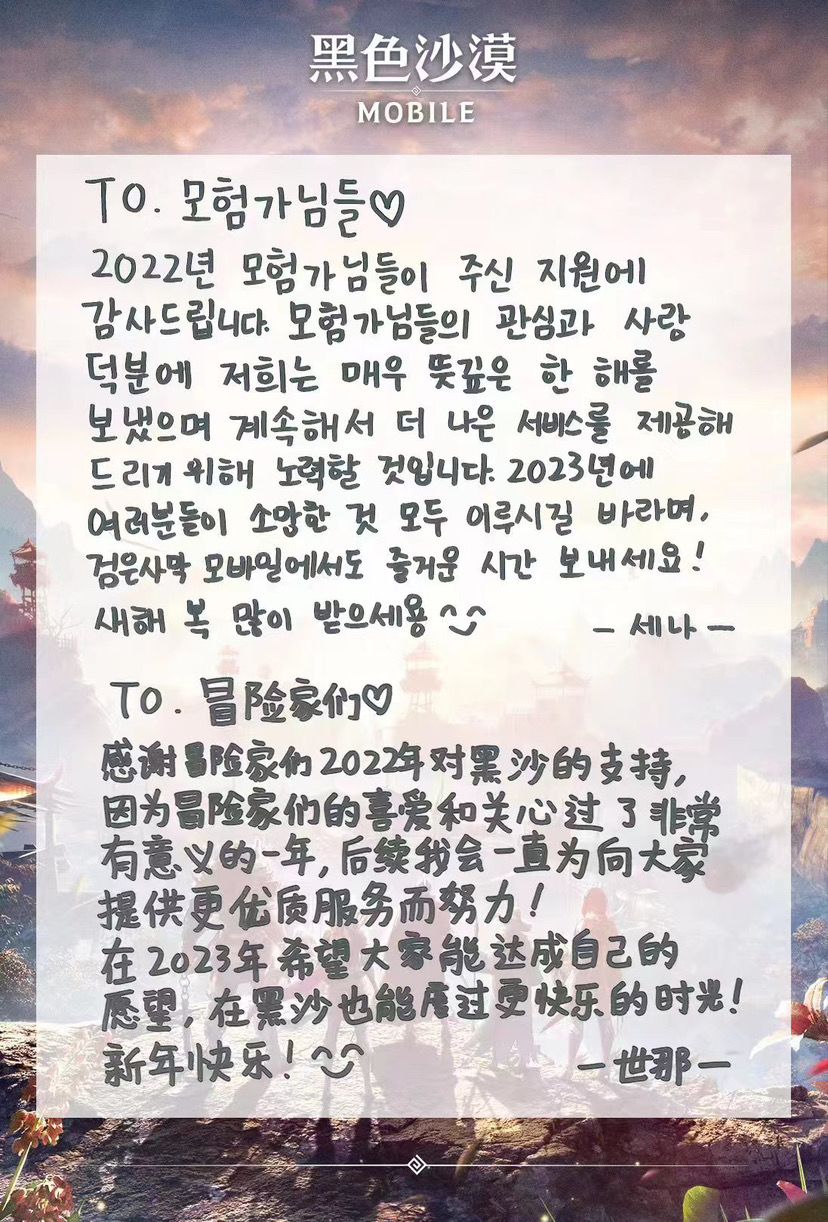 黑色沙漠
MOBILE
TO. 모험가님들♡
2022년 모험가님들이 주신 지원에
감사드립니다. 모험가님들의 관심과 사랑
덕분에 저희는 매우 뜻깊은 한 해를
보냈으며 계속해서 더 나은 서비스를 제공해
드리기 위해 노력할 것입니다. 2023년에
여러분들이 소망한 것 모두 이루시길 바라며,
검은사막 모바일에서도 즐거운 시간 보내세요!
새해 복 많이 받으세용 ^_^
- 세나 -
TO. 冒险家们♡
感谢冒险家们2022年对黑沙的支持,
因为冒险家们的喜爱和关心过了非常
有意义的一年,后续我会一直为向大家
提供更优质服务而努力!
在2023年希望大家能达成自己的
愿望,在黑沙也能度过更快乐的时光!
新年快乐! ^_^
- 世那 -